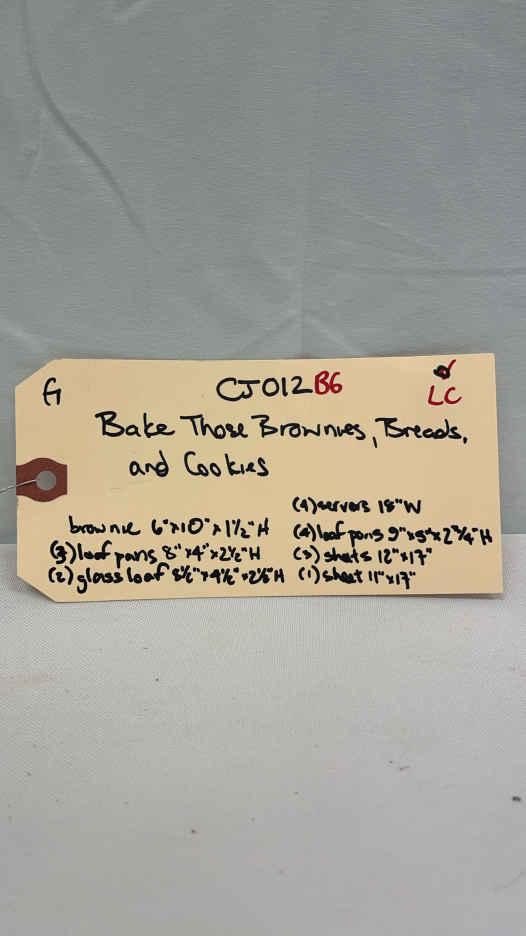 G
CJ012 B6
LC
Bake Those Brownies, Breads,
and Cookies
brownie 6"x10"x1½"H
(3) loaf pans 8"x4"x2½"H
(2) glass loaf 8½"x4½"x2½"H
(4) servers 18"W
(4) loaf pans 9"x5"x2¾"H
(3) sheets 12"x17"
(1) sheet 11"x17"